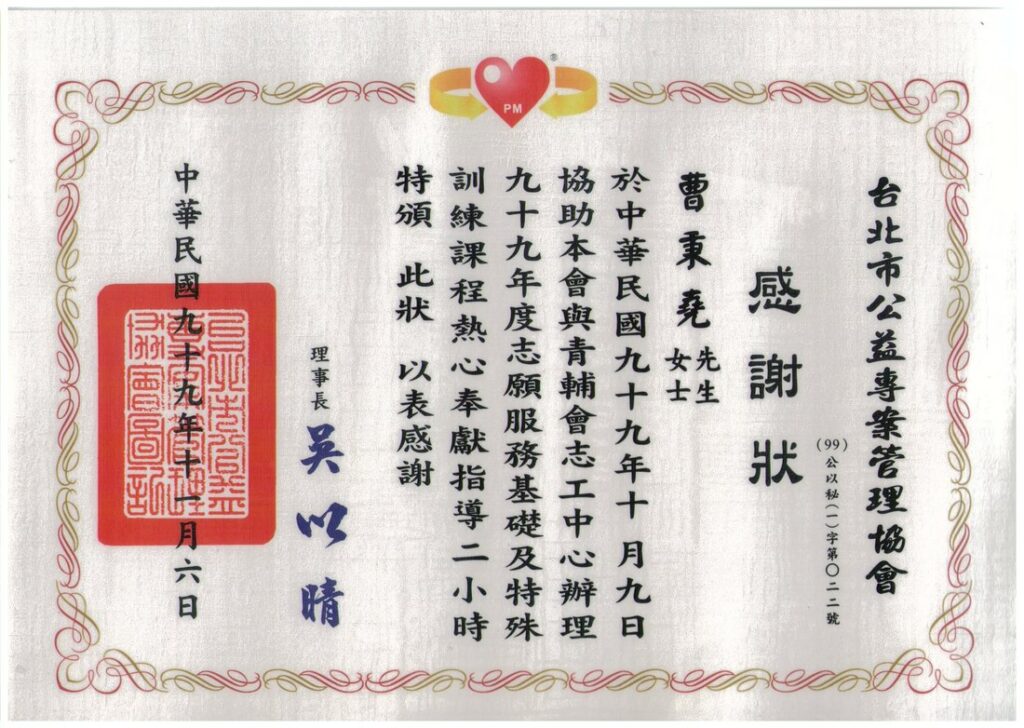 PM
®
台北市公益專案管理協會
(99)公以秘(一)字第〇二二號
感謝狀
曹秉堯先生
女士
於中華民國九十九年十月九日
協助本會與青輔會志工中心辦理
九十九年度志願服務基礎及特殊
訓練課程熱心奉獻指導二小時
特頒 此狀 以表感謝
理事長 吳以晴
中華民國九十九年十一月六日